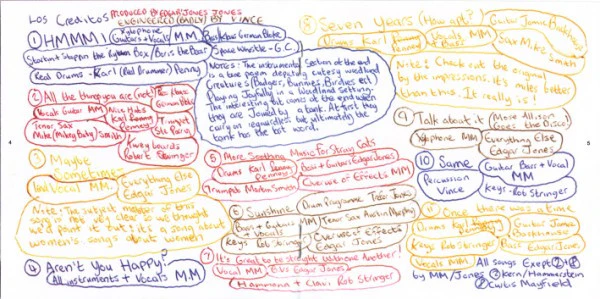 Los Creditos PRODUCED BY EDGAR JONES JONES
ENGINEERED (BADLY) BY VINCE
① HMMM! Xylophone
Guitars + Vocals MM Bass
Stompin + Steppin the Rhythm Box / Boris the Boar Space Whistle - G.C.
Real Drums - Karl (Bad Drummer) Penny
NOTES: The instrumental section at the end
is a tone poem depicting cutesy woodland
creatures (Badgers, Bunnies, Birdies etc)
Playing Joyfully in a Woodland Setting.
The interesting bit comes at the end when
they are joined by a tank. At first they
carry on regardless but ultimately the
tank has the last word.
② All the things you are (not)
Vocals Guitar MM
Nice Hats
Karl Penny
Tenor Sax
Mike Smith
Trumpet
Stu
Funky boards
Robert Stringer
③ Maybe
Sometime
Lead Vocal MM. Everything Else
Edgar Jones
Note: The subject matter of this
song is not very clear so we thought
we'd point it out: its a song about
women's songs about women
④ Aren't You Happy?
All instruments + Vocals MM
⑤ More Soothing Music for Stray Cats
Drums Karl Penny
Bass + Guitars Edgar Jones
Trumpets Martin Smith Overuse of Effects MM
⑥ Sunshine Drum Programme Trevor Jones
Bass + Guitars
+ Vocals MM Tenor Sax Austin Murphy
Keys Rob Stringer Overuse of Effects
Edgar Jones
⑦ It's Great to be Straight With One Another!
Vocal MM BVs Edgar Jones
Hammond + Clavi Rob Stringer
⑧ Seven Years (How apt?)
Drums Karl Penny
Vocals MM
+ Bass
Guitar Jamie
Sax Mike Smith
Note: Check out the original
by the impressions. it's miles better
than this. It really is!
⑨ Talk about it (Mose Allison
Goes the Disco)
Xylophone MM Everything Else
Edgar Jones
⑩ Same
Percussion
Vince
Guitar Bass + Vocal
MM
Keys - Rob Stringer
⑪ Once there was a time
Drums Karl
Guitar Jamie
Keys Rob Stringer
Bass Edgar Jones
Vocals MM
All songs Except ② + ⑧
by MM/Jones ② Kern/Hammerstein
⑧ Curtis Mayfield
4
5